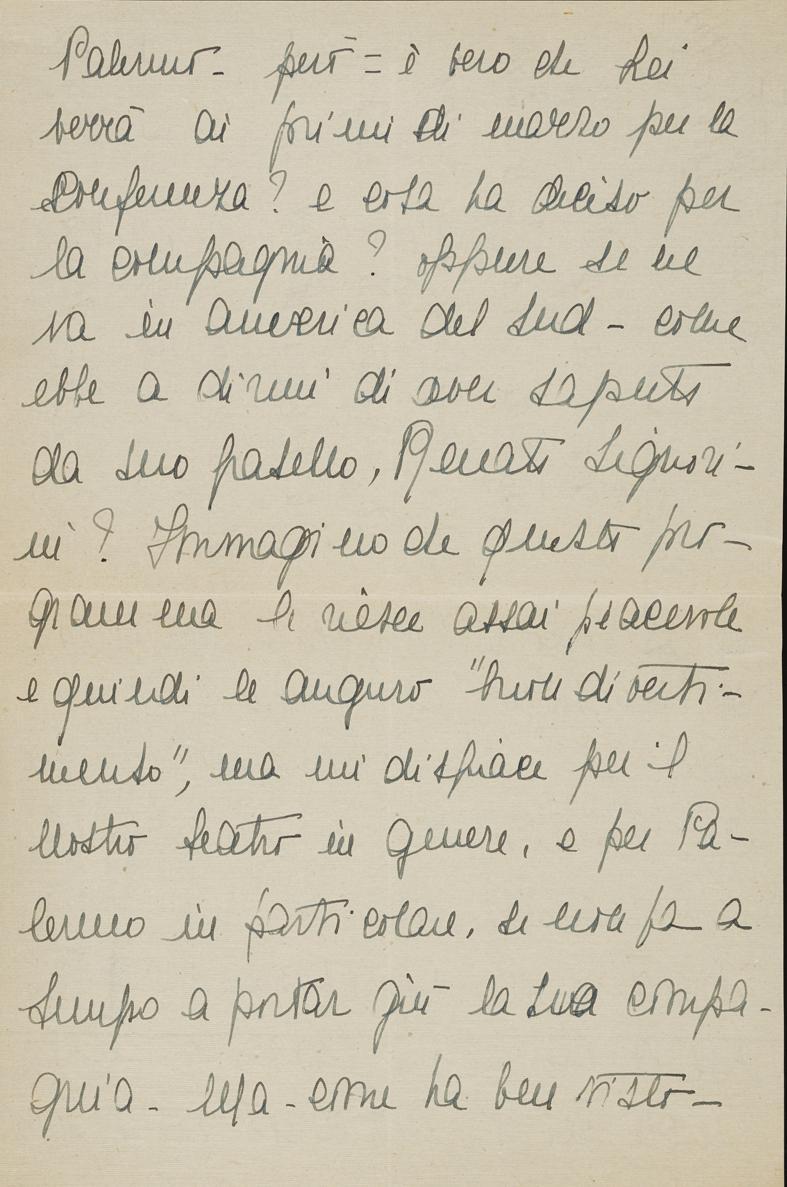 Palermo - però = è vero che Lei
verrà ai primi di marzo per la
conferenza? e cosa ha deciso per
la compagnia? oppure se ne
va in America del Sud - come
ebbe a dirmi di aver saputo
da suo fratello, Renato Signori-
ni? Immagino che questo pro-
gramma le riesce assai piacevole
e quindi le auguro "buon diverti-
mento", ma mi dispiace per il
nostro teatro in genere, e per Pa-
lermo in particolare, se non fa a
tempo a portar giù la sua compa-
gnia - Ma - come ha ben visto -